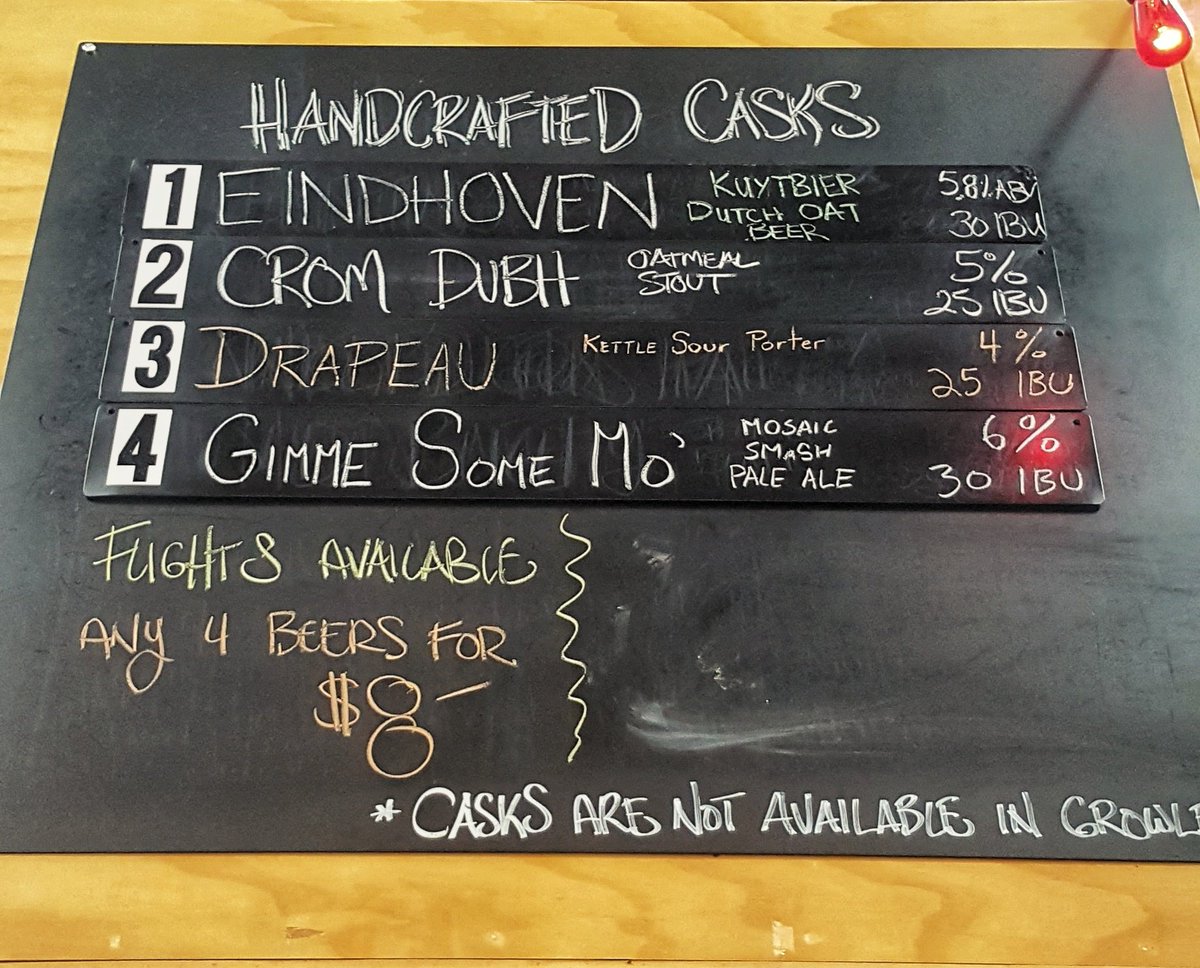 HANDCRAFTED CASKS
1 EINDHOVEN KUYTBIER 5.8% AB
DUTCH OAT 30 IBU
BEER
2 CROM DUBH OATMEAL 5%
STOUT 25 IBU
3 DRAPEAU KETTLE SOUR PORTER 4%
25 IBU
4 GIMME SOME MO' MOSAIC 6%
SMaSH
PALE ALE 30 IBU
FLIGHTS AVAILABLE
ANY 4 BEERS FOR
$8-
* CASKS ARE NOT AVAILABLE IN GROWLE